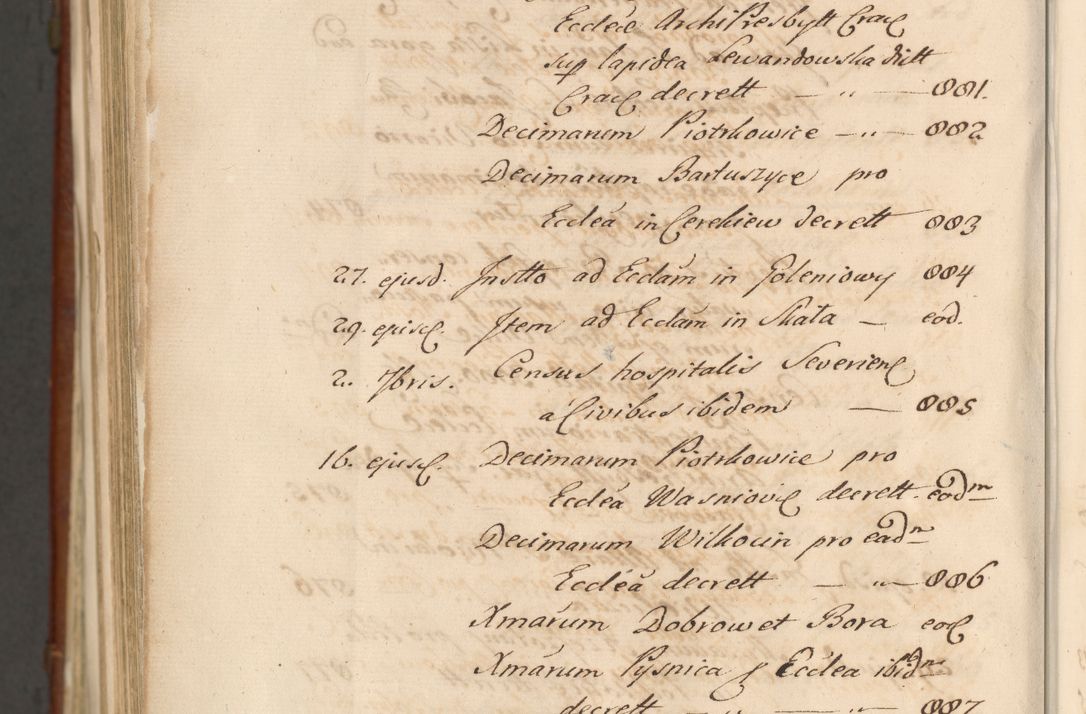 Ecclae ArchiPresbytt Crac
sup lapidea Lewandowska dictt
Crac decrett — „ — 881.
Decimarum Piotrkowice — „ — 882
Decimarum Bartuszyce pro
Ecclea in Cerekiew decrett 883
27. ejusd. Instto ad Ecclam in Goleniowy 884
29. ejusd. Item ad Ecclam in Skała — eod.
2. 7bris. Census hospitalis Severien
a Civibus ibidem — 885
16. ejusd. Decimarum Piotrkowice pro
Ecclea Wasniovic decrett. eodm
Decimarum Wilkocin pro eadn
Ecclea decrett — „ — 886
Xmarum Dobrow et Bora eod
Xmarum Pysnica p Ecclea ibidm
decrett — „ — „ — 887